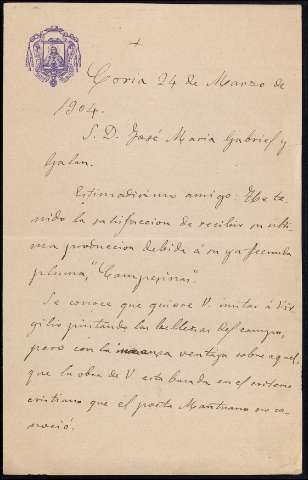 +
Coria 24 de Marzo de
1904.
S. D. José María Gabriel y
Galan.
Estimadísimo amigo: He te
nido la satisfaccion de recibir su ulti
ma produccion debida á su ya fecunda
pluma, "Campesinas".
Se conoce que quiere V. imitar á Vir
gilio pintando las bellezas del campo,
pero con la ventaja sobre aquel,
que la obra de V. está basada en el criterio
cristiano que el poeta Mantuano no co-
noció.